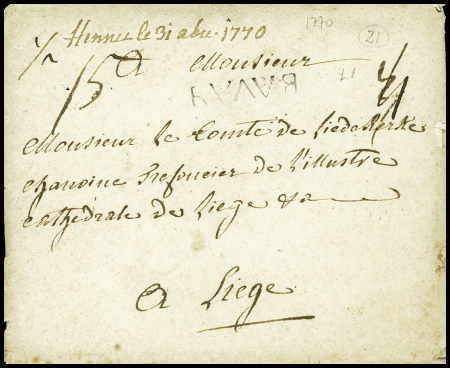 Hennes le 31 abre 1770
1770
21
15 A Monsieur
17
BAVAY
Monsieur Le Comte de Liedekerke
chanoine Trefoncier de l'illustre
cathédrale de Liege &a
A Liege